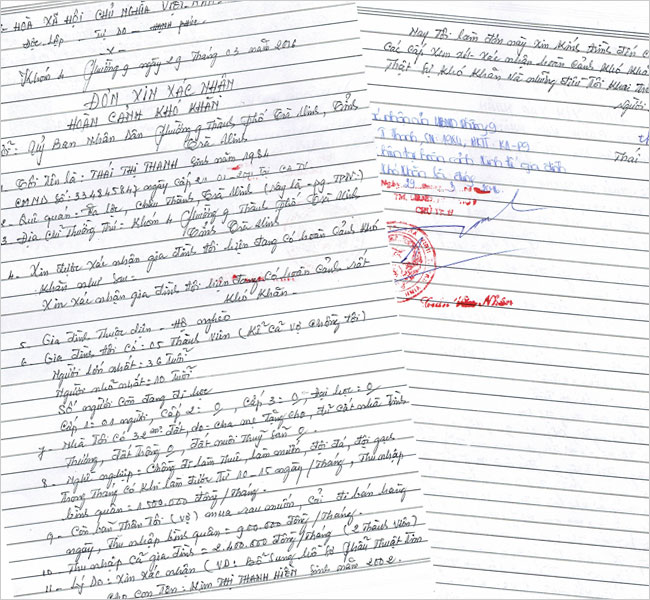 HOÀ XÃ HỘI CHỦ NGHĨA VIỆT NAM
Độc lập Tự Do Hạnh phúc
Khóm 4 phường 9 ngày 29 Tháng 03 năm 2016
ĐƠN XIN XÁC NHẬN
HOÀN CẢNH KHÓ KHĂN
Uỷ Ban Nhân Dân Phường 9 Thành phố Trà Vinh, Tỉnh
Trà Vinh
1. Tôi Tên là: THÁI THỊ THANH Sinh năm 1984
CMND Số: 334345847 ngày Cấp
2. Quê quán: Đa Lộc, Châu Thành, Trà Vinh
3. Địa Chỉ Thường Trú: Khóm 4 Phường 9 Thành phố Trà Vinh
Tỉnh Trà Vinh
4. Xin được Xác nhận gia đình tôi hiện đang Có hoàn Cảnh Khó
Khăn như Sau:
Xin Xác nhận gia đình tôi hiện đang Có hoàn Cảnh rất
Khó Khăn
5. Gia đình Thuộc diện - Hộ nghèo
6. Gia đình tôi Có: 05 Thành viên (Kể Cả Vợ Chồng Tôi)
Người lớn nhất: 36 Tuổi
Người nhỏ nhất: 10 Tuổi
Số người Còn đang đi học
Cấp 1: 01 người, Cấp 2: 0, Cấp 3: 0, Đại học: 0
7. Nhà Tôi Có 32 m² đất, do Cha mẹ Tặng Cho, đã Cất nhà Tình
Thương, đất Trồng 0, đất nuôi Thuỷ Sản 0.
8. Nghề nghiệp: Chồng đi làm Thuê, làm mướn,
Trong Tháng Có Khi làm được Từ 10 - 15 ngày / Tháng, Thu nhập
bình quân: 1.500.000 đồng / Tháng.
9. Còn bản Thân Tôi (Vợ) mua rau muống, Cải đi bán hàng
ngày, Thu nhập bình quân = 900.000 đồng / Tháng.
10. Thu nhập Cả gia đình = 2.400.000 đồng / Tháng (2 Thành Viên)
11. Lý Do: Xin Xác nhận (VD: Bổ Sung hồ Sơ Phẫu Thuật Tim
Cho Con Tên: KIM THỊ THANH HIỀN Sinh năm 2002.
Nay Tôi làm đơn này Xin Kính trình đến
Các Cấp Xem xét - Xác nhận hoàn Cảnh Khó Khăn
Thật Sự Khó Khăn Và những điều Tôi Khai
người
Thái
Thanh, SN 1984,
Ngày 29
TM. UBND
CHỦ TỊCH
Nhân